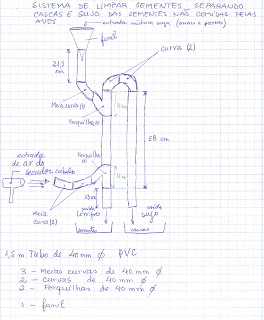 SISTEMA DE LIMPAR SEMENTES SEPARANDO
CASCAS E SUJO DAS SEMENTES NÃO COMIDAS PELAS
AVES
entrada mistura suja
funil
curva (2)
21,5
cm
Meia curva (1)
Forquilha (1)
58 cm
Forquilha
entrada
de ar do
secador cabelo
Meia
curva (2)
saida
limpo
saida
sujo
sementes
cascas
1,5 m Tubo de 40 mm Ø PVC
3 - Meias curvas de 40 mm Ø
2 - Curvas de 40 mm Ø
2 - Forquilhas de 40 mm Ø
1 - funil